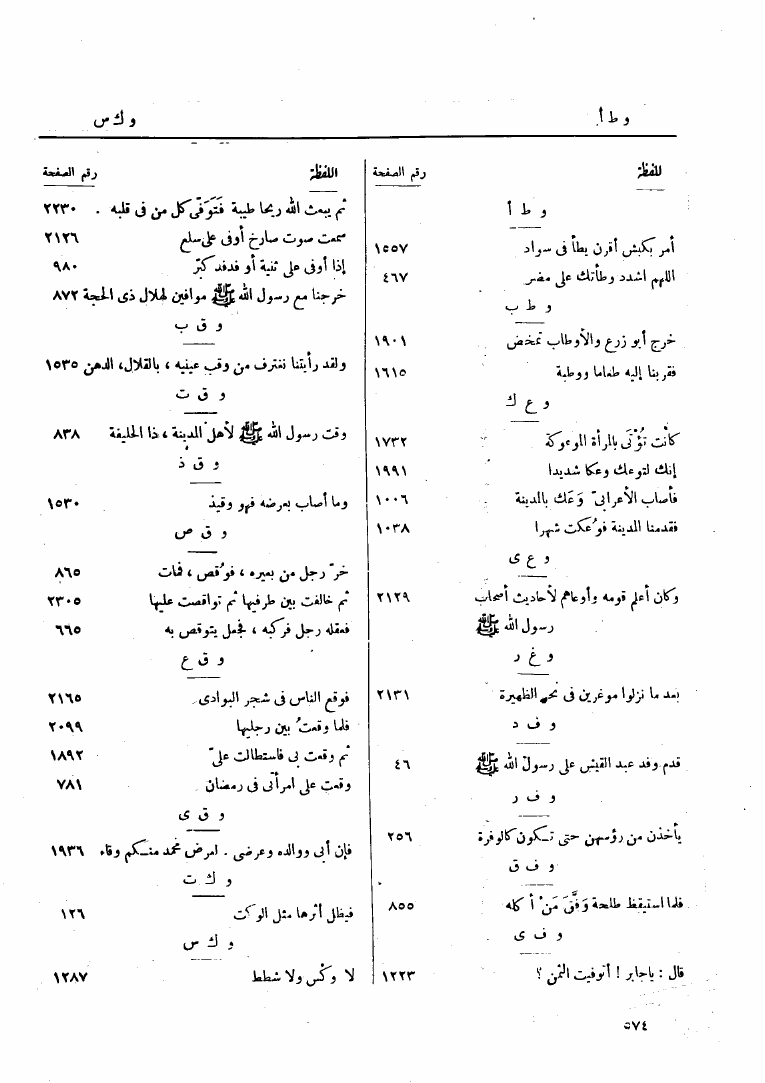 و ط أ
و ك س
اللفظة رقم الصفحة
و ط أ
أمر بكبش أقرن يطأ فى سواد ١٥٥٧
اللهم اشدد وطأتك على مضر ٤٦٧
و ط ب
خرج أبو زرع والأوطاب تمخض ١٩٠١
فقربنا إليه طعاما ووطبة ١٦١٥
و ع ك
كانت تُؤْتَى بالمرأة الموعوكة ١٧٣٢
إنك لتوعك وعكا شديدا ١٩٩١
فأصاب الأعرابىّ وَعَك بالمدينة ١٠٠٦
فقدمنا المدينة فوُعكت شهرا ١٠٣٨
و ع ى
وكان أعلم قومه وأوعاهم لأحاديث أصحاب ٢١٢٩
رسول الله ﷺ
و غ ر
بعد ما نزلوا موغرين فى نحر الظهيرة ٢١٣١
و ف د
قدم وفد عبد القيس على رسول الله ﷺ ٤٦
و ف ر
يأخذن من رؤسهن حتى تكون كالوفرة ٢٥٦
و ف ق
فلما استيقظ طلحة وَفَّقَ مَنْ أكله ٨٥٥
و ف ى
قال : ياجابر ! أتوفيت الثمن ؟ ١٢٢٣
اللفظة رقم الصفحة
ثم يبعث الله ريحا طيبة فَتَوَفَّى كل من فى قلبه . ٢٢٣٠
سمعت صوت صارخ أوفى على سلع ٢١٢٦
إذا أوفى على ثنية أو فدفد كبّر ٩٨٠
خرجنا مع رسول الله ﷺ موافين لهلال ذى الحجة ٨٧٢
و ق ب
ولقد رأيتنا نغترف من وقب عينيه ، بالقلال، الدهن ١٥٣٥
و ق ت
وقت رسول الله ﷺ لأهل المدينة ، ذا الحليفة ٨٣٨
و ق ذ
وما أصاب بعرضه فهو وقيذ ١٥٣٠
و ق ص
خرّ رجل من بعيره ، فوُقص ، فمات ٨٦٥
ثم خالفت بين طرفيها ثم تواقصت عليها ٢٣٠٥
فعقله رجل فركبه ، فجعل يتوقص به ٦٦٥
و ق ع
فوقع الناس فى شجر البوادى ٢١٦٥
فلما وقعتُ بين رجليها ٢٠٩٩
ثم وقعت بى فاستطالت علىّ ١٨٩٢
وقعت على امرأتى فى رمضان ٧٨١
و ق ى
فإن أبى ووالده وعرضى . لعرض محمد منكم وقاء ١٩٣٦
و ك ت
فيظل أثرها مثل الوكت ١٢٦
و ك س
لا وكْس ولا شطط ١٢٨٧
٥٧٤